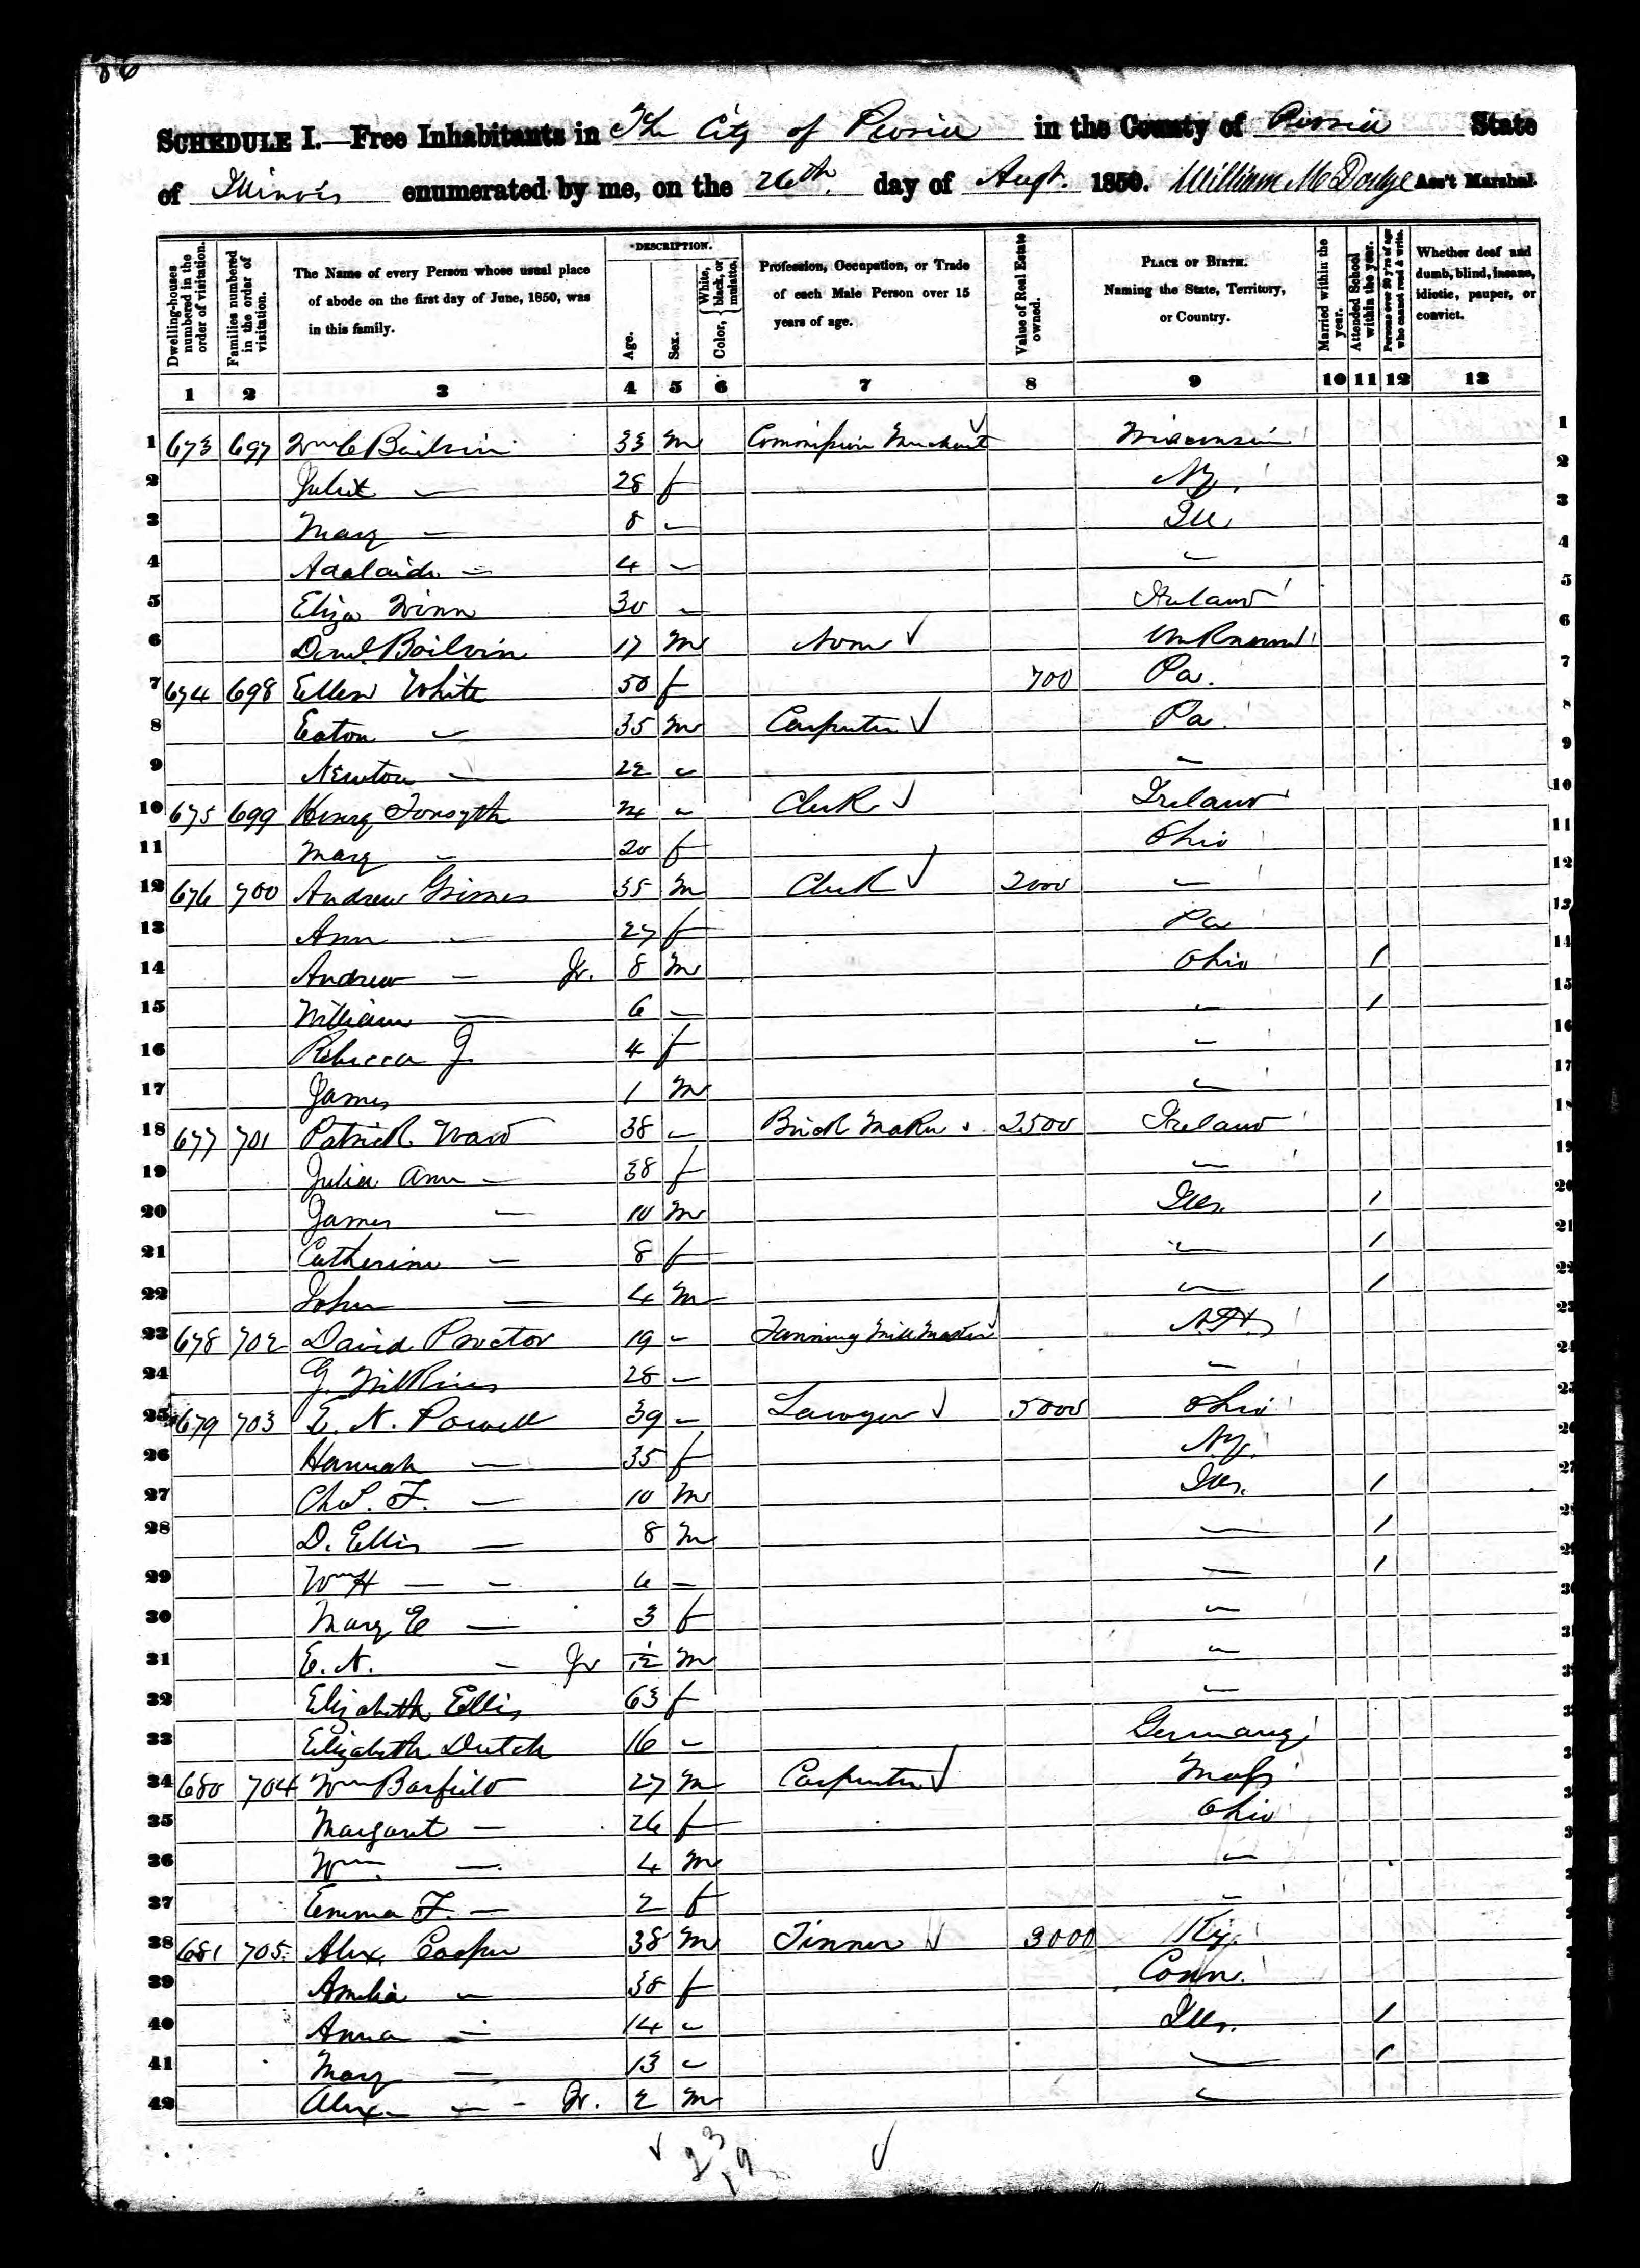 86
SCHEDULE I.—Free Inhabitants in The City of Peoria in the County of Peoria State
of Illinois enumerated by me, on the 26th. day of Augt. 1850. William M Dodge Ass't Marshal.
Dwelling-houses numbered in the order of visitation. Families numbered in the order of visitation. The Name of every Person whose usual place of abode on the first day of June, 1850, was in this family. DESCRIPTION. Age. Sex. Color, { White, black, or mulatto. Profession, Occupation, or Trade of each Male Person over 15 years of age. Value of Real Estate owned. PLACE OF BIRTH. Naming the State, Territory, or Country. Married within the year. Attended School within the year. Persons over 20 y'rs of age who cannot read & write. Whether deaf and dumb, blind, insane, idiotic, pauper, or convict.
1 2 3 4 5 6 7 8 9 10 11 12 13
1 673 697 Wm C Boilvin 33 M Commission Merchant Wisconsin 1
2 Juliet — 28 f NY. 2
3 Mary — 8 — Ill 3
4 Adalaide — 4 — — 4
5 Eliza Winn 30 — Ireland 5
6 Danl. Boilvin 17 M None Unknown 6
7 674 698 Ellen White 50 f 700 Pa. 7
8 Eaton — 35 M Carpenter Pa 8
9 Newton — 22 — — 9
10 675 699 Henry Forsyth 24 — Clerk Ireland 10
11 Mary — 20 f Ohio 11
12 676 700 Andrew Grimes 35 M Clerk 2000 — 12
13 Ann — 27 f Pa 13
14 Andrew — Jr. 8 M Ohio 1 14
15 William — 6 — — 1 15
16 Rebecca J 4 f — 16
17 James 1 M — 17
18 677 701 Patrick Ward 38 — Brick Maker 2500 Ireland 18
19 Julia Ann — 38 f — 19
20 James — 10 M Ills. 1 20
21 Catherine — 8 f — 1 21
22 John — 4 M — 1 22
23 678 702 David Proctor 19 — Fanning Mill N.H. 23
24 G. Wilkins 28 — — 24
25 679 703 E. N. Powell 39 — Lawyer 5000 Ohio 25
26 Hannah — 35 f NY. 26
27 Chs. F. — 10 M Ills. 1 27
28 D. Ellis — 8 M — 1 28
29 Wm H — — 6 — — 1 29
30 Mary E — 3 f —
31 E. N. — Jr M —
32 Elizabeth Ellis 63 f —
33 Elizabeth Dutch 16 — Germany
34 680 704 Wm Barfield 27 M Carpenter Mass
35 Margaret — 26 f Ohio
36 Wm — 4 M —
37 Emma F. — 2 f —
38 681 705 Alex. Cooper 38 M Tinner 3000 Ky.
39 Amelia — 38 f Conn.
40 Anna — 14 — Ills. 1
41 Mary — 13 — — 1
42 Alex — — Jr. 2 M —
23
19